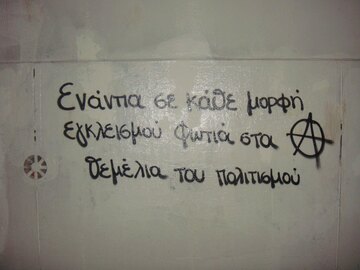 Ενάντια σε κάθε μορφή
εγκλεισμού φωτιά στα
θεμέλια του πολιτισμού